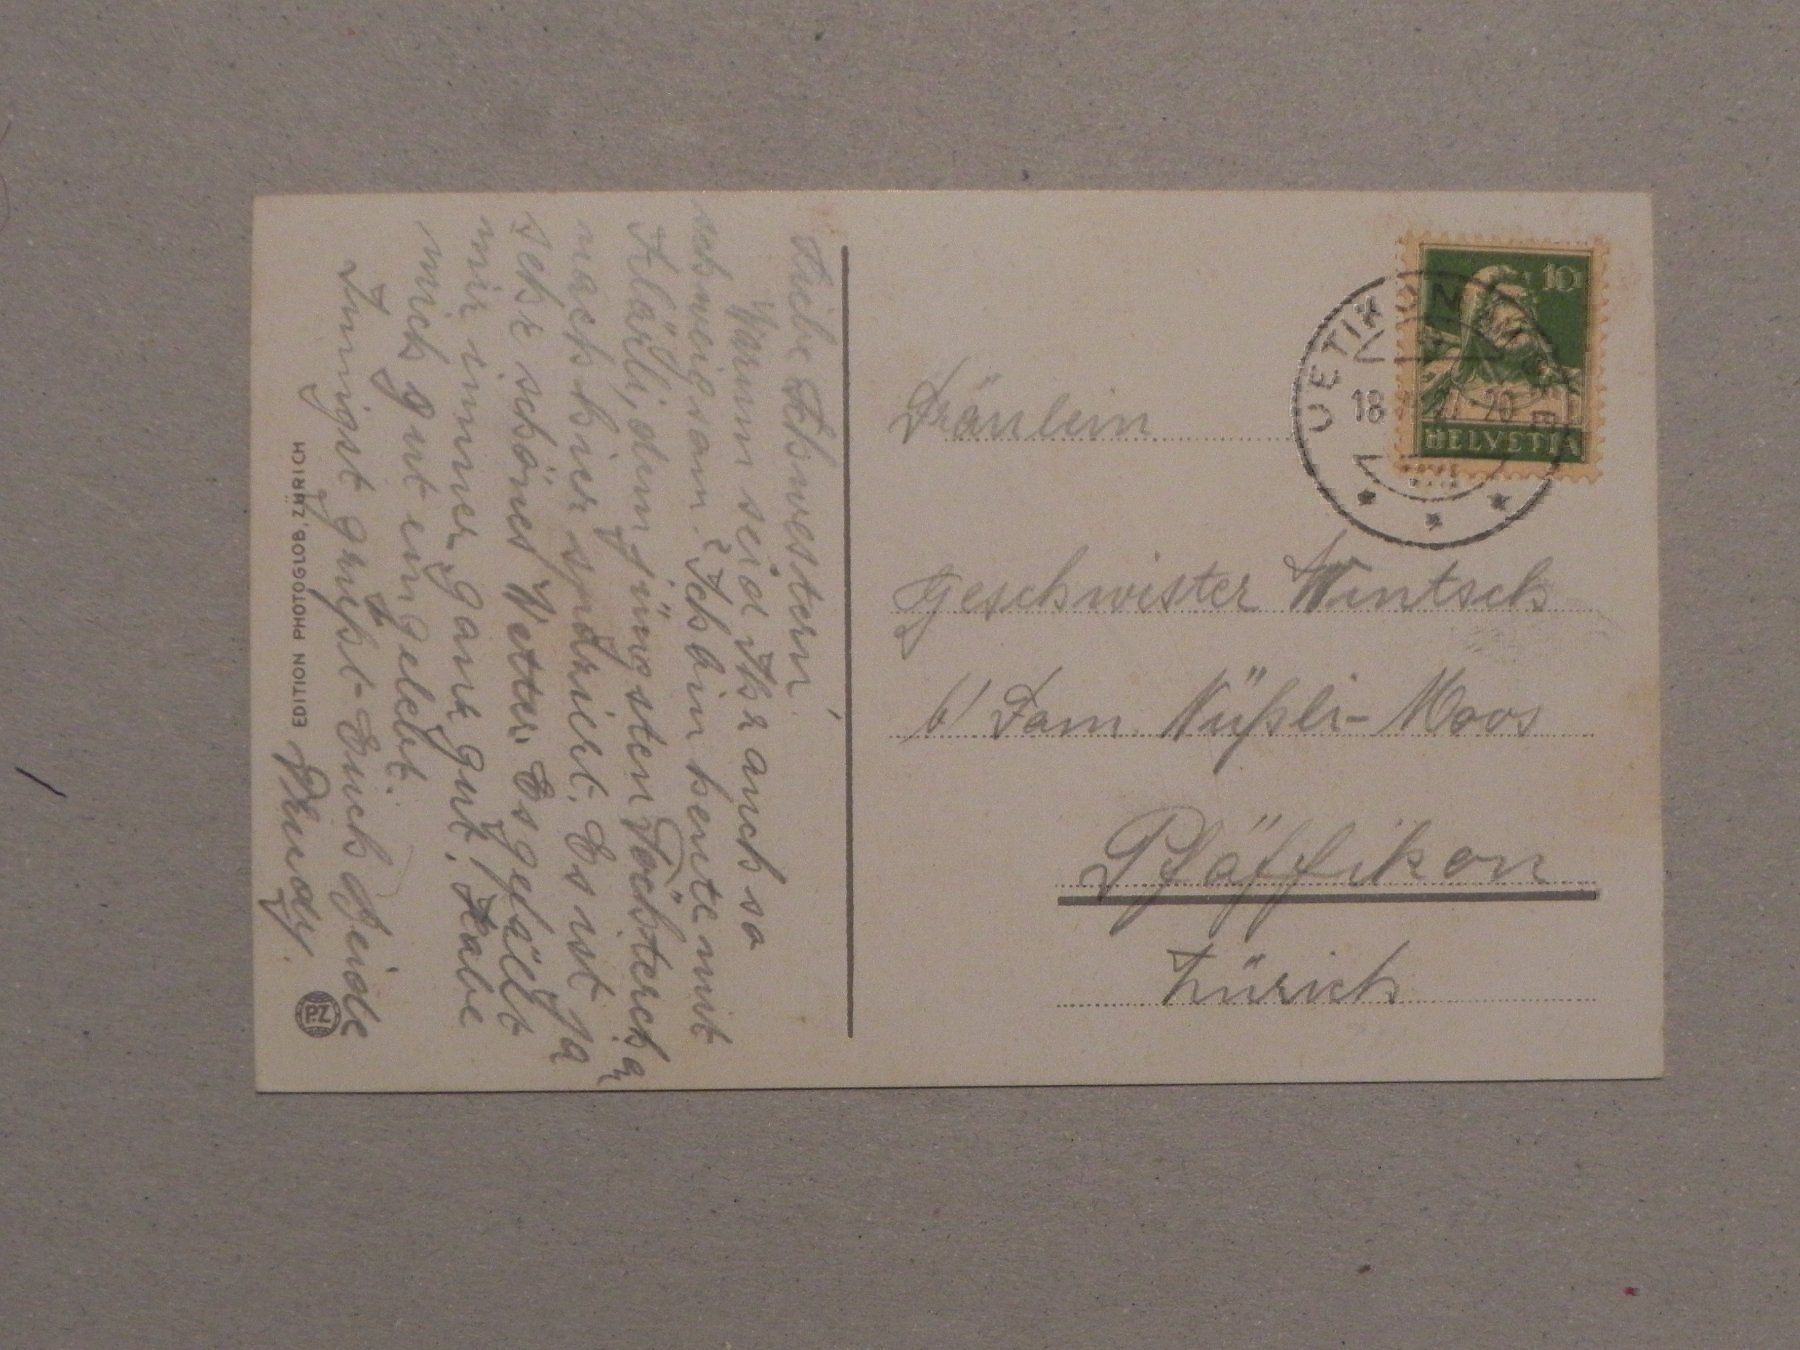 Liebe Schwestern!
Warum seid Ihr auch so
schweigsam? Ich bin heute mit
Klärli, dem jüngsten Töchterch
nach hier spaziert. Es ist ja
sehr schönes Wetter. Es gefällt
mir immer ganz gut. Habe
mich gut eingelebt.
Innigst grüßt Euch Beide
Trudy.
EDITION PHOTOGLOB, ZÜRICH
P.Z
10
HELVETIA
UETIKON
18
20
Fräulein
Geschwister Wintsch
b/ Fam. Nüßli-Moos
Pfäffikon
Zürich